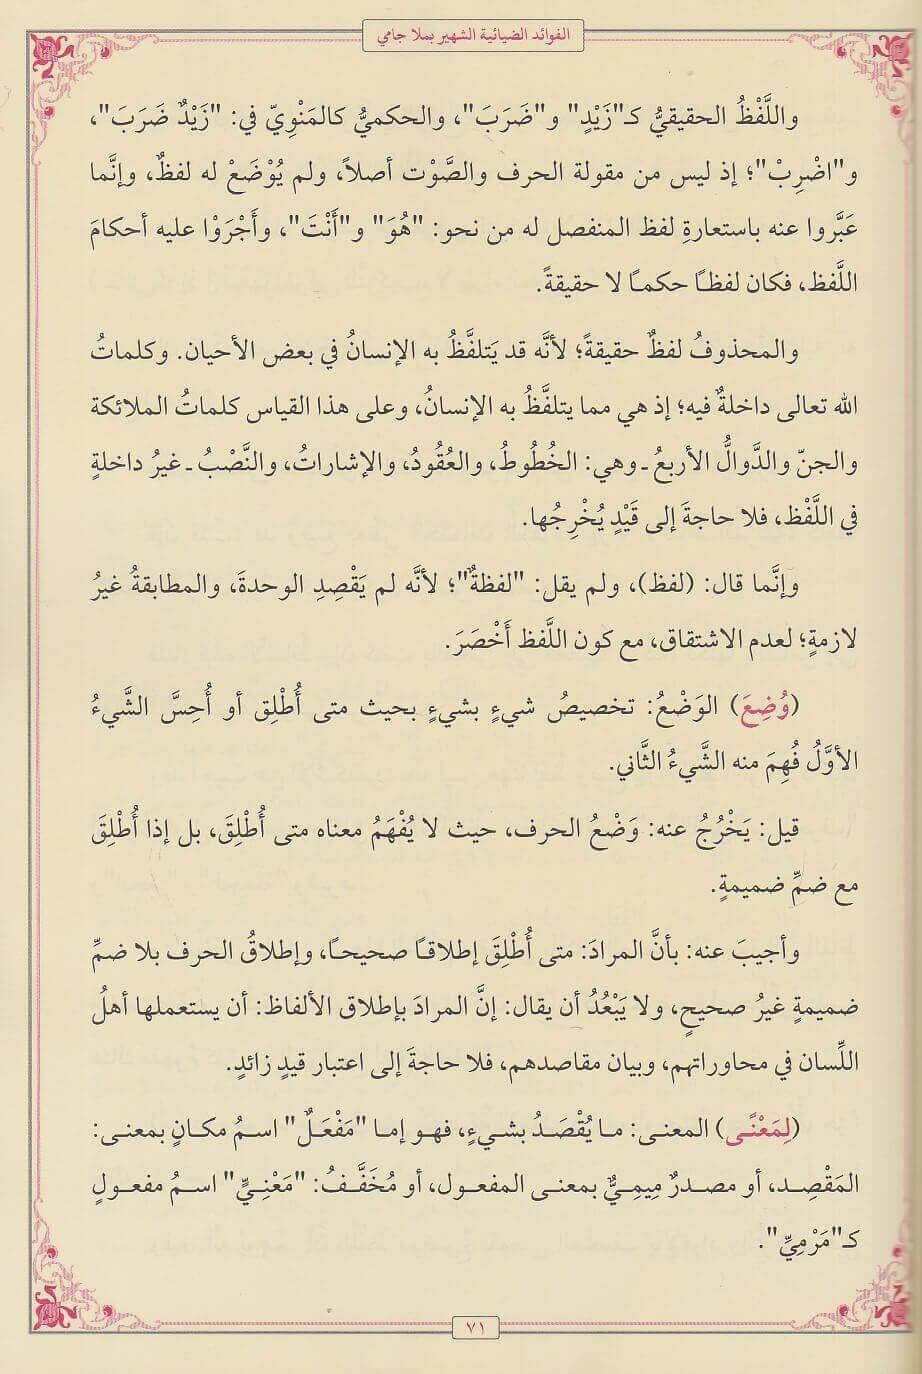 الفوائد الضيائية الشهير بملا جامي
واللَّفْظُ الحقيقيُّ كـ"زَيْدٍ" و"ضَرَبَ"، والحكميُّ كالمَنْوِيّ في: "زَيْدٌ ضَرَبَ"،
و"اضْرِبْ"؛ إذ ليس من مقولة الحرف والصَّوْت أصلاً، ولم يُوْضَعْ له لفظٌ، وإنَّما
عَبَّروا عنه باستعارةِ لفظ المنفصل له من نحو: "هُوَ" و"أَنْتَ"، وأَجْرَوْا عليه أحكامَ
اللَّفظ، فكان لفظًا حكمًا لا حقيقةً.
والمحذوفُ لفظٌ حقيقةً؛ لأنَّه قد يَتلفَّظُ به الإنسانُ في بعض الأحيان. وكلماتُ
الله تعالى داخلةٌ فيه؛ إذ هي مما يتلفَّظُ به الإنسانُ، وعلى هذا القياس كلماتُ الملائكة
والجنّ والدَّوالُّ الأربعُ ـ وهي: الخُطُوطُ، والعُقُودُ، والإشاراتُ، والنَّصْبُ ـ غيرُ داخلةٍ
في اللَّفْظ، فلا حاجةَ إلى قَيْدٍ يُخْرِجُها.
وإنَّما قال: (لفظ)، ولم يقل: "لفظةٌ"؛ لأنَّه لم يَقْصِدِ الوحدةَ، والمطابقةُ غيرُ
لازمةٍ؛ لعدم الاشتقاق، مع كون اللَّفظ أَخْصَرَ.
(وُضِعَ) الوَضْعُ: تخصيصُ شيءٍ بشيءٍ بحيث متى أُطْلِق أو أُحِسَّ الشَّيءُ
الأوَّلُ فُهِمَ منه الشَّيءُ الثَّاني.
قيل: يَخْرُجُ عنه: وَضْعُ الحرف، حيث لا يُفْهَمُ معناه متى أُطْلِقَ، بل إذا أُطْلِقَ
مع ضمِّ ضميمةٍ.
وأجيبَ عنه: بأنَّ المرادَ: متى أُطْلِقَ إطلاقًا صحيحًا، وإطلاقُ الحرف بلا ضمِّ
ضميمةٍ غيرُ صحيحٍ، ولا يَبْعُدُ أن يقال: إنَّ المرادَ بإطلاق الألفاظ: أن يستعملها أهلُ
اللِّسان في محاوراتهم، وبيان مقاصدهم، فلا حاجةَ إلى اعتبار قيدٍ زائدٍ.
(لِمَعْنًى) المعنى: ما يُقْصَدُ بشيءٍ، فهو إما "مَفْعَلٌ" اسمُ مكانٍ بمعنى:
المَقْصِد، أو مصدرٌ مِيمِيٌّ بمعنى المفعول، أو مُخَفَّفُ: "مَعْنِيٍّ" اسمُ مفعولٍ
كـ"مَرْمِيٍّ".
٧١